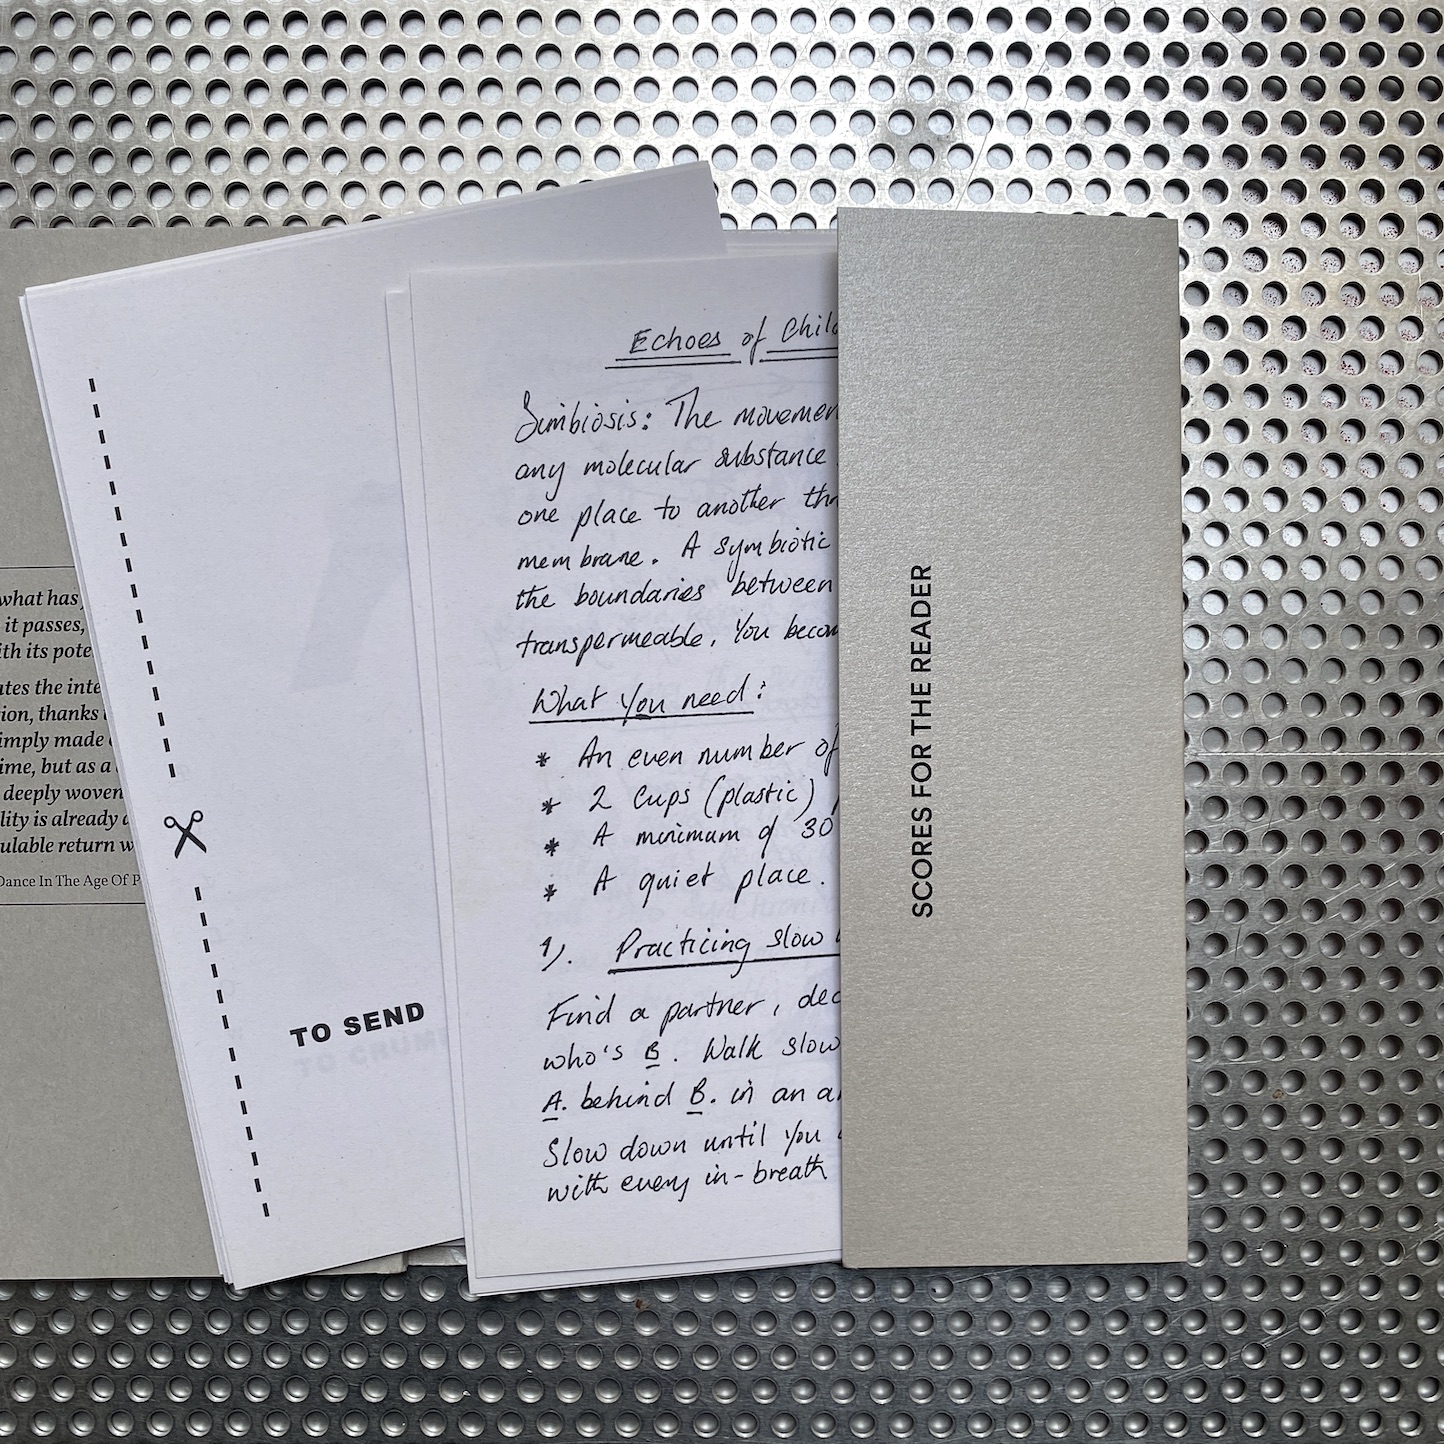 what has
it passes,
ith its pote
ates the inte
ion, thanks
imply made
ime, but as a
deeply woven
lity is already a
ulable return w
Dance In The Age Of P
TO SEND
TO CRUM
Echoes of Chil
Simbiosis: The movemen
any molecular substance
one place to another thr
membrane. A symbiotic
the boundaries between
transpermeable, You becom
What you need:
* An even number of
* 2 Cups (plastic)
* A minimum of 30
* A quiet place.
1). Practicing slow
Find a partner, dec
who's B. Walk slow
A. behind B. in an a
Slow down until you
with every in-breath
SCORES FOR THE READER